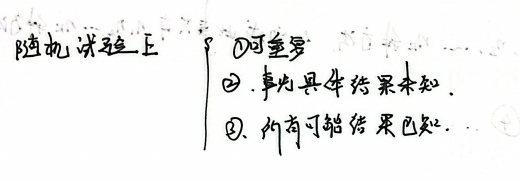 随机试验E
①可重复
②.事先具体结果未知.
③.所有可能结果已知.